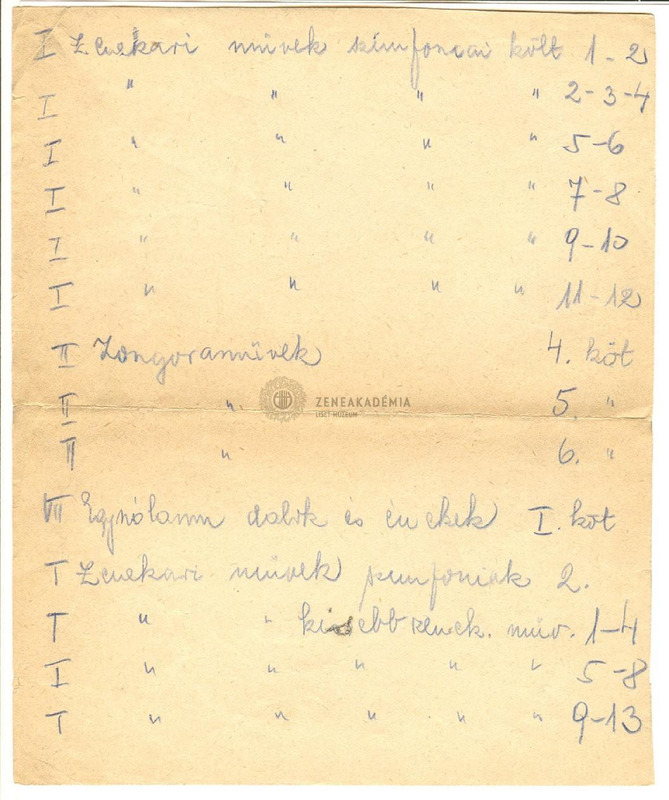 I Zenekari művek szimfoniai költ 1-2
I " " " " 2-3-4
I " " " " 5-6
I " " " " 7-8
I " " " " 9-10
I " " " " 11-12
II Zongoraművek 4. köt
II " 5. "
II " 6. "
ZENEAKADÉMIA
LISZT MÚZEUM
VII Egyszólamu dalok és énekek I. köt
I Zenekari művek szimfoniák 2.
I " " kisebb zenek. műv. 1-4
I " " " " " 5-8
I " " " " " 9-13